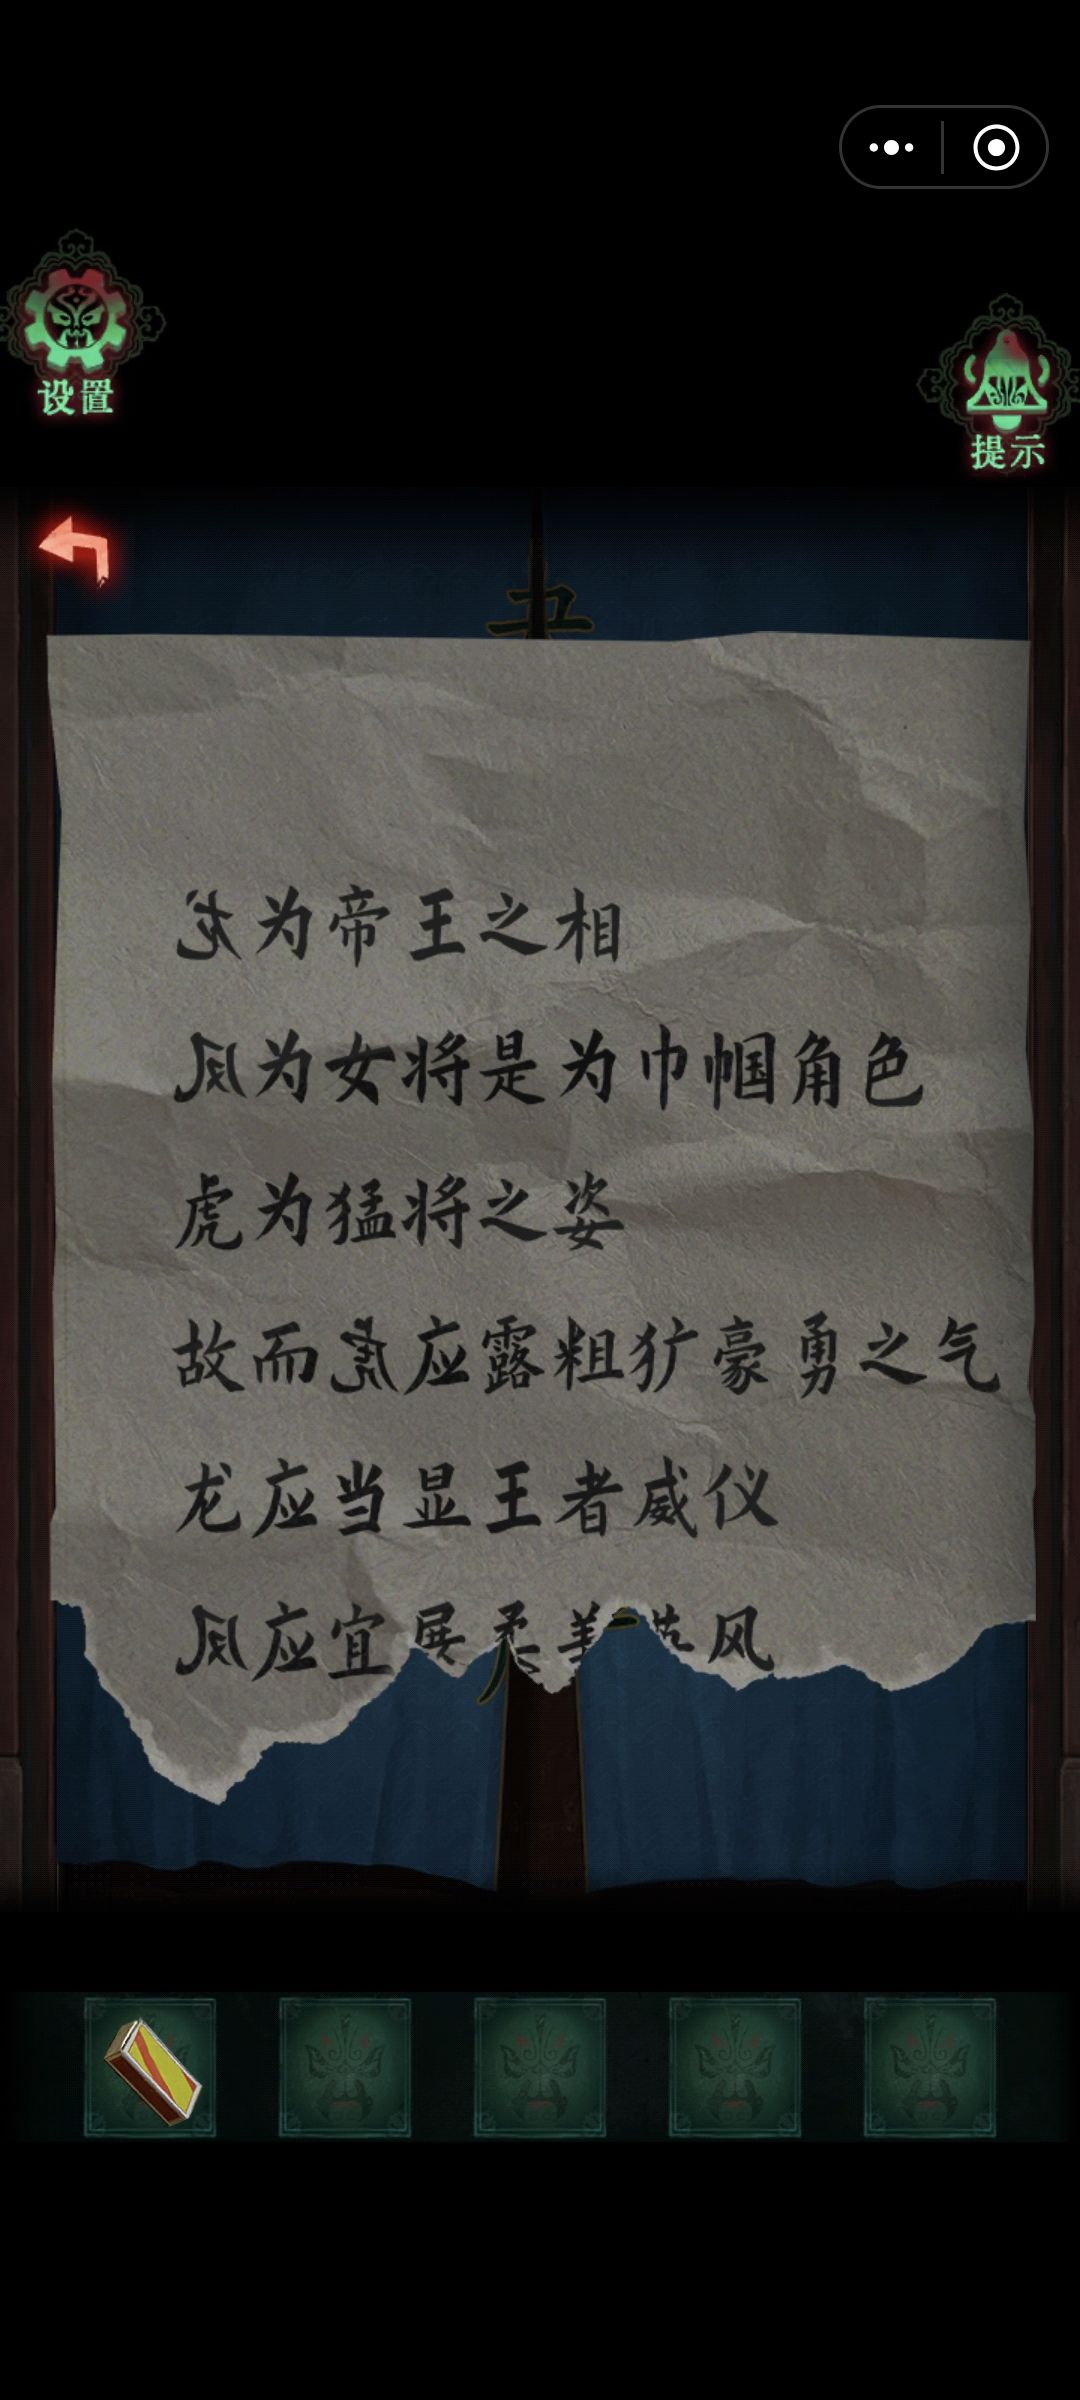 设置
提示
龙为帝王之相
凤为女将是为巾帼角色
虎为猛将之姿
故而虎应露粗犷豪勇之气
龙应当显王者威仪
凤应宜展柔美 风